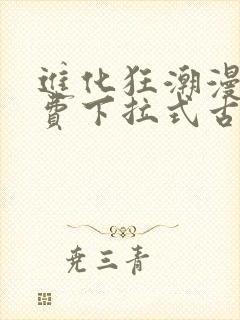 进化狂潮漫
费下拉式古
尧三青